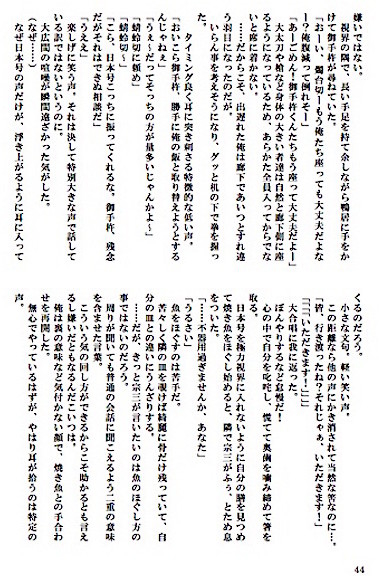 嫌いではない。
視界の隅で、長い手足を持て余しながら鴨居に手をか
けて御手杵が声を上げる。
「おーい、燭台切ーもう俺たち座っても大丈夫だよな
ー？俺腹減って倒れそー」
「あーごめん！御手杵くんたちもう座って大丈夫だよー」
大太刀や槍など身体の大きい者達は自然と廊下側に座
るようになっているため、あらかた全員入ってからでな
いと席に着かない。
……だからこそ、出遅れた俺は廊下であいつとすれ違
う羽目になったのだが。
いらん事を考えそうになり、グッと机の下で拳を握っ
た。
タイミング良く耳に突き刺さる特徴的な低い声。
「おいこら御手杵、勝手に俺の飯と取り替えようとする
んじゃねぇ」
「うぇ～だってそっちの方が量多いじゃんかよ～」
「蜻蛉切に頼め」
「蜻蛉切～」
「こら、日本号こっちに振ってくれるな。御手杵、残念
だがそれはできぬ相談だ」
「うええ」
楽しげに笑う声。それは決して特別大きな声で話して
いる訳ではないというのに。
大広間の喧噪が瞬間遠ざかった気がした。
（なぜ……）
なぜ日本号の声だけが、浮き上がるように耳に入って
くるのだろう。
小さな文句、軽い笑い声。
この距離なら他の声にかき消されて当然な筈なのに…。
「皆、行き渡ったね？それじゃあ、いただきます！」
「「「いただきます！」」」
大合唱に我に返った。
ぼんやりするなど怠慢だ！
心の中で自分を叱咤し、慌てて奥歯を噛み締めて箸を
取る。
日本号を極力視界に入れないように自分の膳を見つめ
て焼き魚をほぐし始めると、隣で宗三がふぅ、とため息
をついた。
「……不器用過ぎませんか、あなた」
「うるさい」
魚をほぐすのは苦手だ。
苦々しく隣の皿を覗けば綺麗に骨だけ残っていて、自
分の皿との違いにうんざりする。
……だが、きっと宗三が言いたいのは魚のほぐし方の
事ではないのだろう。
周りが聞いても普通の会話に聞こえるよう二重の意味
を含ませた言葉。
こういう気の回し方ができるからこそ助かるとも言え
るし嫌いだともなるんだこいつは。
俺は裏の意味など気付かない顔で、焼き魚との手合わ
せを再開した。
無心でやっているはずが、やはり耳が拾うのは特定の
声。
44